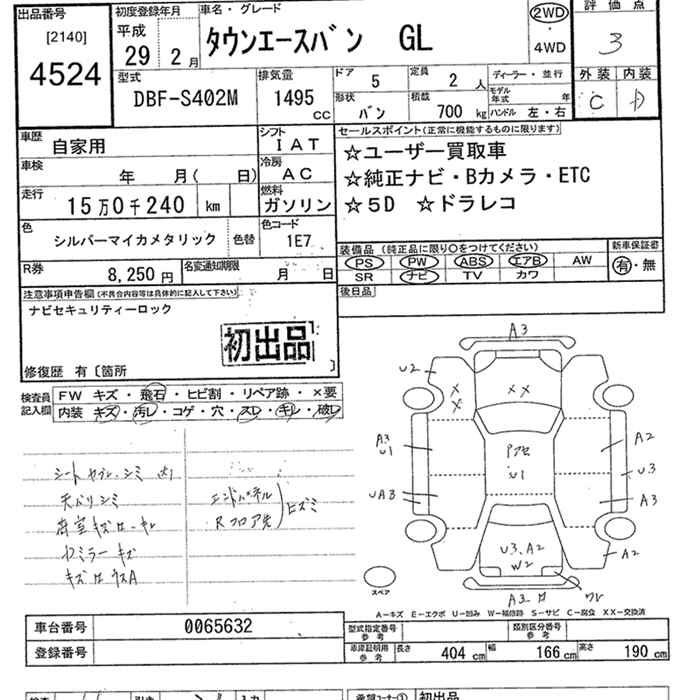 出品番号
[2140]
4524
初度登録年月
平成
29 2月
車名・グレード
タウンエースバン GL
2WD
・
4WD
評価点
3
外装 内装
C D
型式
DBF-S402M
排気量
1495 cc
ドア 5
定員 2 人
形状 バン
積載 700 kg
ディーラー・並行
モデル年式 年
ハンドル 左・右
車歴
自家用
シフト
IAT
車検
年 月( 日)
冷房
AC
走行
15万0千240 km
燃料
ガソリン
色
シルバーマイカメタリック
色替
色コード
1E7
R券
8,250円
名変通知期限
月 日
セールスポイント(正常に機能するものに限ります)
☆ユーザー買取車
☆純正ナビ・Bカメラ・ETC
☆5D ☆ドラレコ
装備品(純正品に限り○をつけてください)
PS PW ABS エアB AW
SR ナビ TV カワ
新車保証書
有・無
後日品
注意事項申告欄(不具合内容等は具体的に記入して下さい)
ナビセキュリティーロック
初出品
修復歴 有〔箇所 〕
検査員記入欄
FW キズ・飛石・ヒビ割・リペア跡・×要
内装 キズ・汚レ・コゲ・穴・スレ・キレ・破レ
シートヤブレ、シミ
天バリシミ
エンドパネル
Rフロア先
ヒズミ
ミラーキズ
A3
U2
XX
A3
U1
Pアセ
U1
A2
U3
UA3
A3
U3、A2
W2
A2
A3
ワレ
スペア
A−キズ E−エクボ U−凹み W−補修跡 S−サビ C−腐食 XX−交換済
車台番号
0065632
登録番号
型式指定番号
参考
類別区分番号
参考
車庫証明用
参考
長さ 404 cm
幅 166 cm
高さ 190 cm
初出品